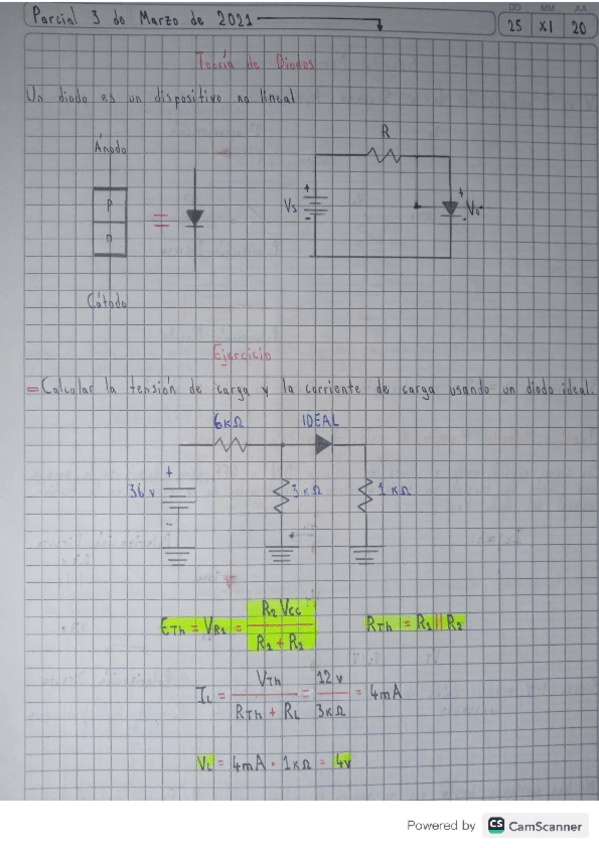 Parcial 3 de Marzo de 2021
DD MM AA
25 XI 20
Teoría de Diodos
Un diodo es un dispositivo no lineal
Ánodo
R
P
=
n
+
Vs
-
+
-
Cátodo
Ejercicio
= Calcular la tensión de carga y la corriente de carga usando un diodo ideal.
6KΩ IDEAL
+
36 v
-
3KΩ
1KΩ
+
ETh = VR2 = R2 Vcc / R1 + R2 RTh = R1 || R2
IL = VTh / RTh + RL = 12 v / 3KΩ = 4mA
VL = 4mA · 1KΩ = 4v
Powered by CS CamScanner